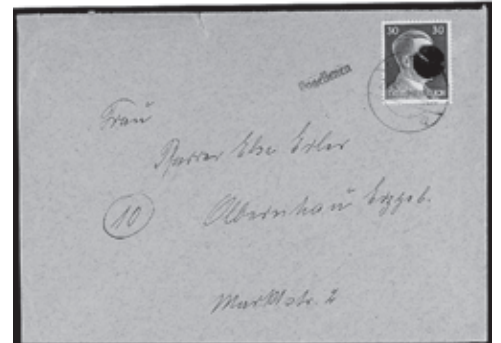 30 30
Frau
Pfarrer Else Erler
10
Olbernhau Erzgeb.
Marktstr. 2